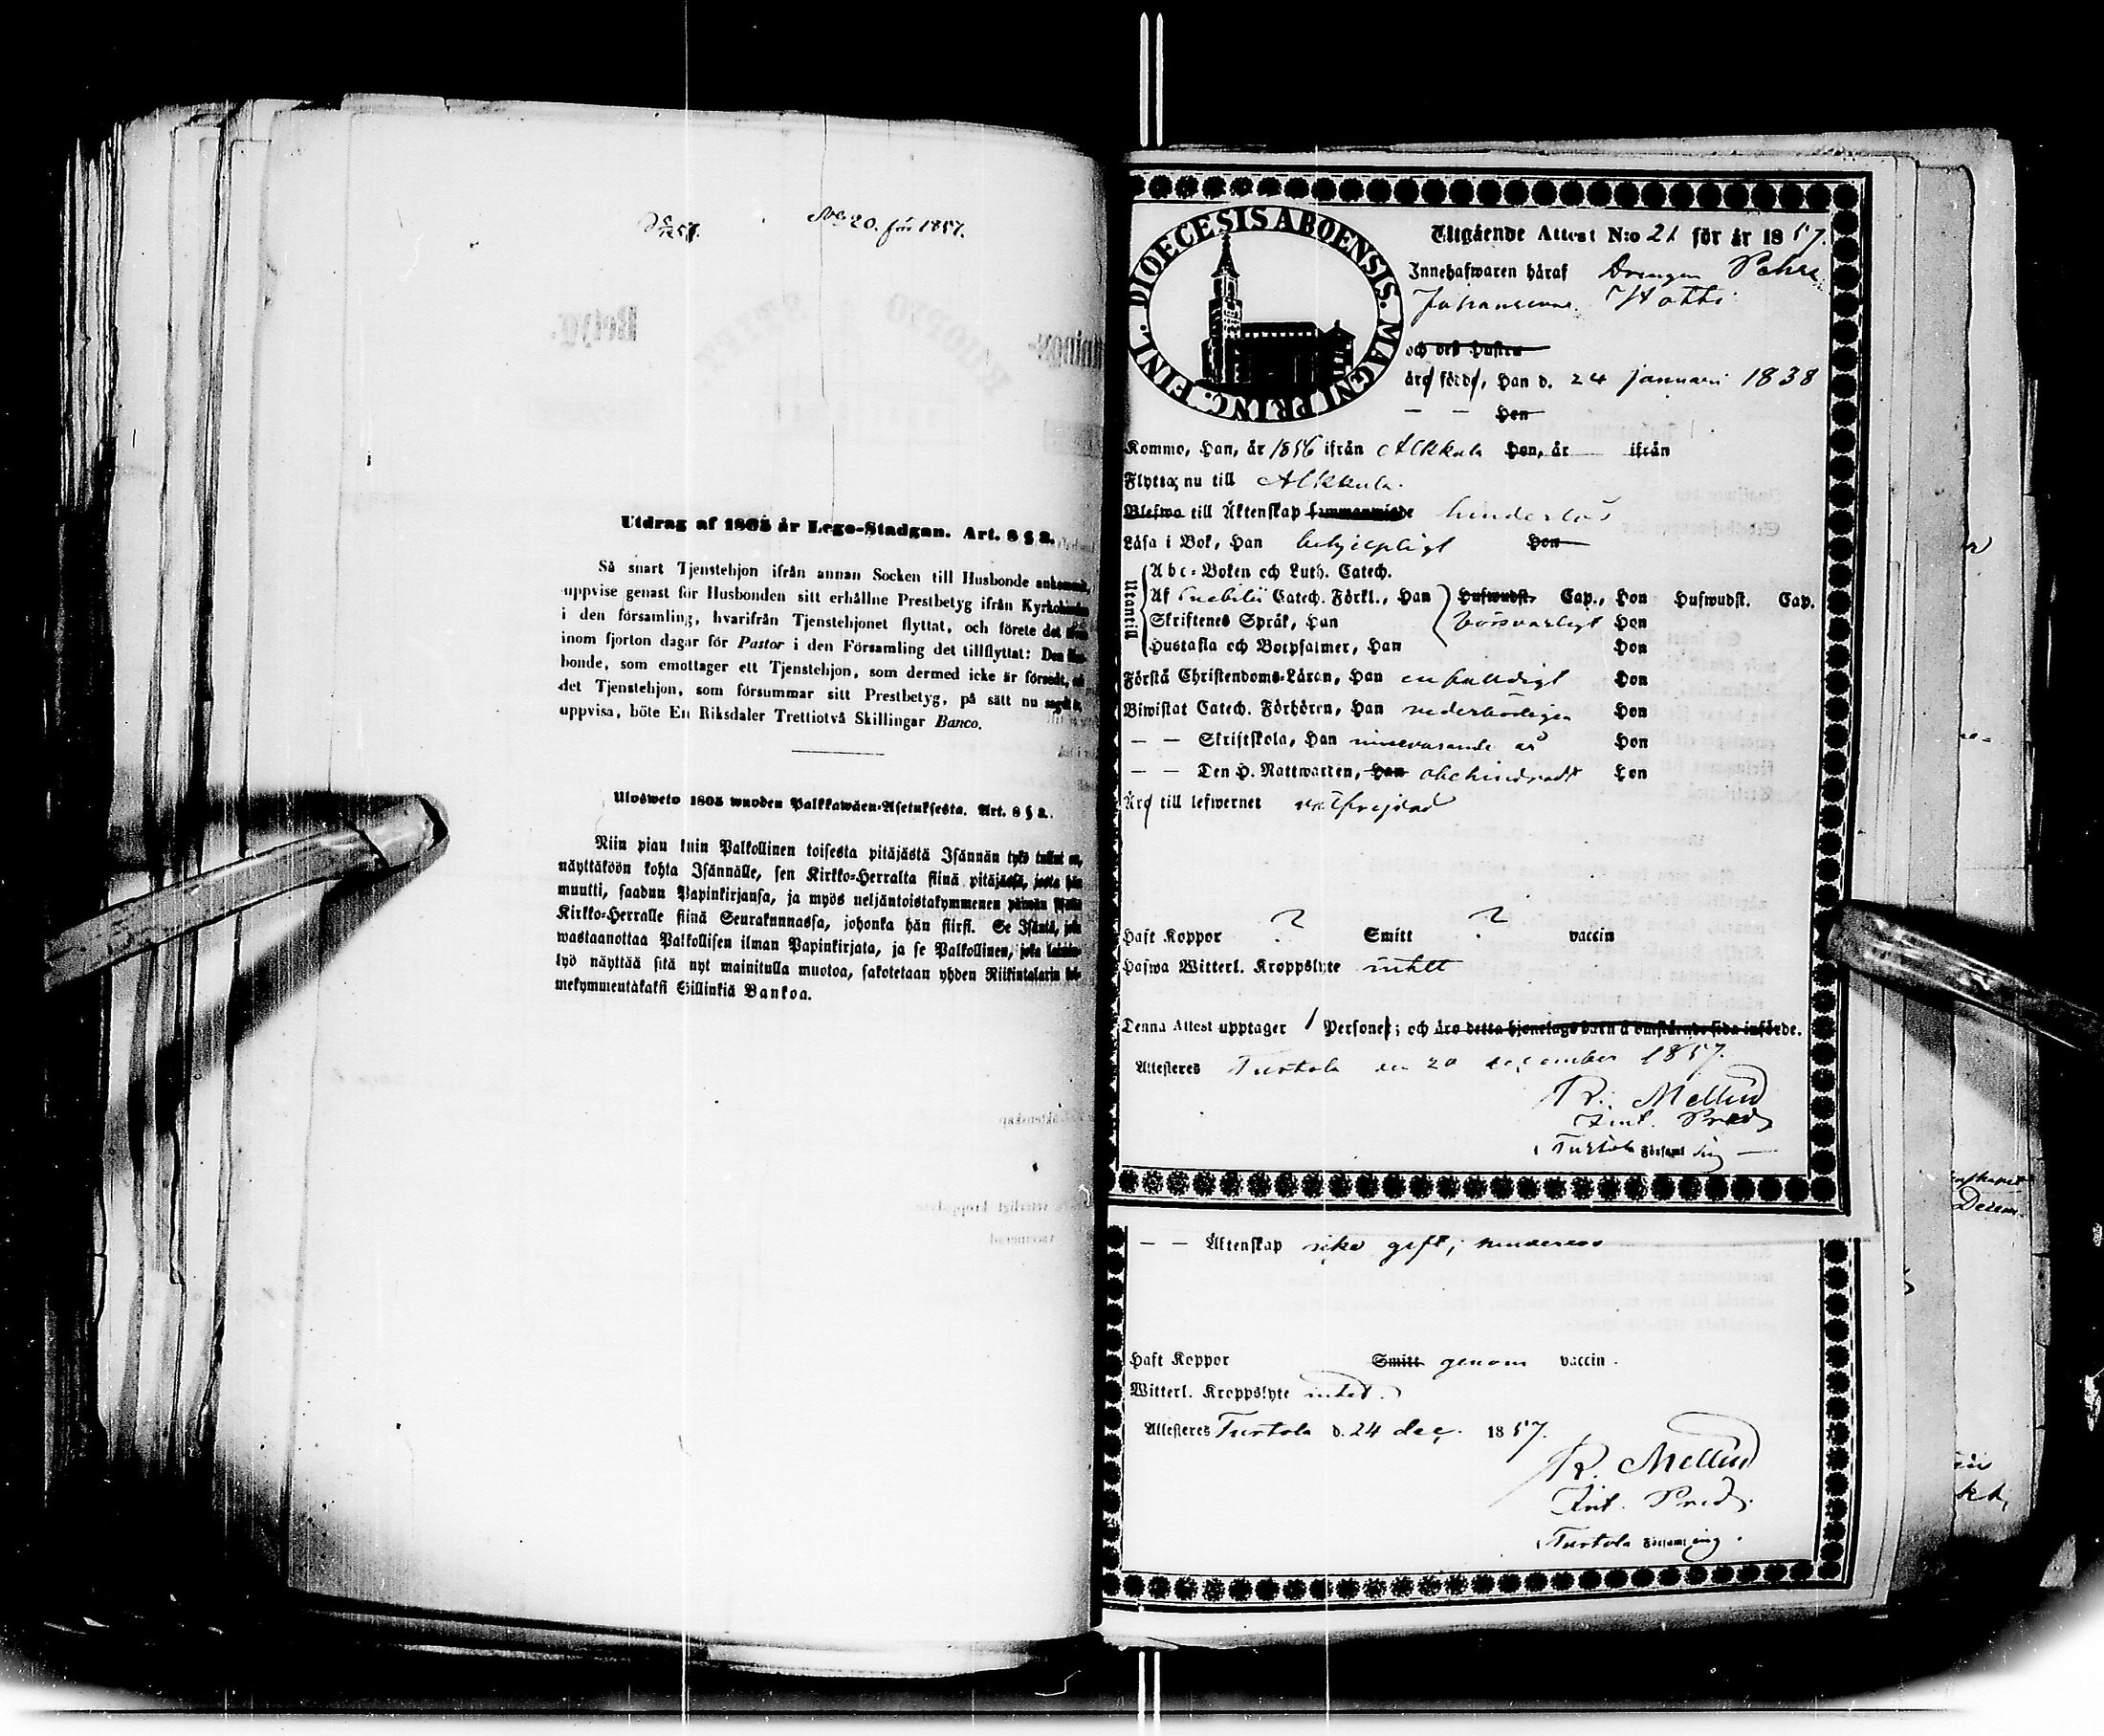 No 20. för 1857.
Utdrag af 1805 år Lego-Stadgan. Art. 8 § 2.
Så snart Tjenstehjon ifrån annan Socken till Husbonde ankommit,
uppvise genast för Husbonden sitt erhållne Prestbetyg ifrån
i den församling, hvarifrån Tjenstehjonet flyttat, och förete det
inom fjorton dagar för Pastor i den Församling det tillflyttat: Den
bonde, som emottager ett Tjenstehjon, som dermed icke är försedt,
det Tjenstehjon, som försummar sitt Prestbetyg, på sätt nu sagdt är,
uppvisa, böte En Riksdaler Trettiotvå Skillingar Banco.
Ulosweto 1805 wuoden Palkkawäen-Asetuksesta. Art. 8 § 2.
Niin pian kuin Palkollinen toisesta pitäjästä Isännän tykö tullut on,
näyttäköön kohta Isännälle, sen Kirkko-Herralta siinä pitäjässä, josta hän
muutti, saadun Papinkirjansa, ja myös neljäntoistakymmenen päiwän
Kirkko-Herralle siinä Seurakunnassa, johonka hän siirsi. Se Isäntä, joka
wastaanottaa Palkollisen ilman Papinkirjata, ja se Palkollinen, joka
lyö näyttää sitä nyt mainitulla muotoa, sakotetaan yhden Riikintalarin
mekymmentäkaksi Sillinkiä Bankoa.
FINL. DIOECESIS ABOENSIS. MAGNI PRINC.
Utgående Attest N:o 21 för år 1857.
Innehafwaren häraf Drengen Pehr
Johansson
och des Hustru
äro födde, Han d. 24 januari 1838
— — Hon
Kommo, Han, år 1856 ifrån Alkkula Hon, år ifrån
Flytta nu till Alkkula.
Blefwo till Äktenskap sammanwigde hinderlös
Läsa i Bok, Han behjelpligt Hon
Utantill
Abc-Boken och Luth. Catech.
Af Svebilii Catech. Förkl., Han Hufwudst. Cap., Hon Hufwudst. Cap.
Skriftenes Språk, Han försvarligt Hon
Hustafla och Botpsalmer, Han Hon
Förstå Christendoms-Läran, Han enfaldigt Hon
Biwistat Catech. Förhören, Han vederbörligen Hon
— — Skriftskola, Han innevarande år Hon
— — Den H. Nattwarden, Han obehindradt Hon
Äro till lefwernet välfrejdad
Haft Koppor ? Smitt ? vaccin
Hafwa Witterl. Kroppslyte intet
Denna Attest upptager 1 Personer; och äro detta hjonelags barn å omstående sida införde.
Attesteras Turtola den 20 december 1857.
R. Mellin
Int. Pred.
i Turtola Församling
— — Äktenskap icke gift; hinderlös
Haft Koppor Smitt genom vaccin.
Witterl. Kroppslyte intet.
Attesteras Turtola d. 24 dec. 1857.
R. Mellin
Int. Pred.
i Turtola Församling.